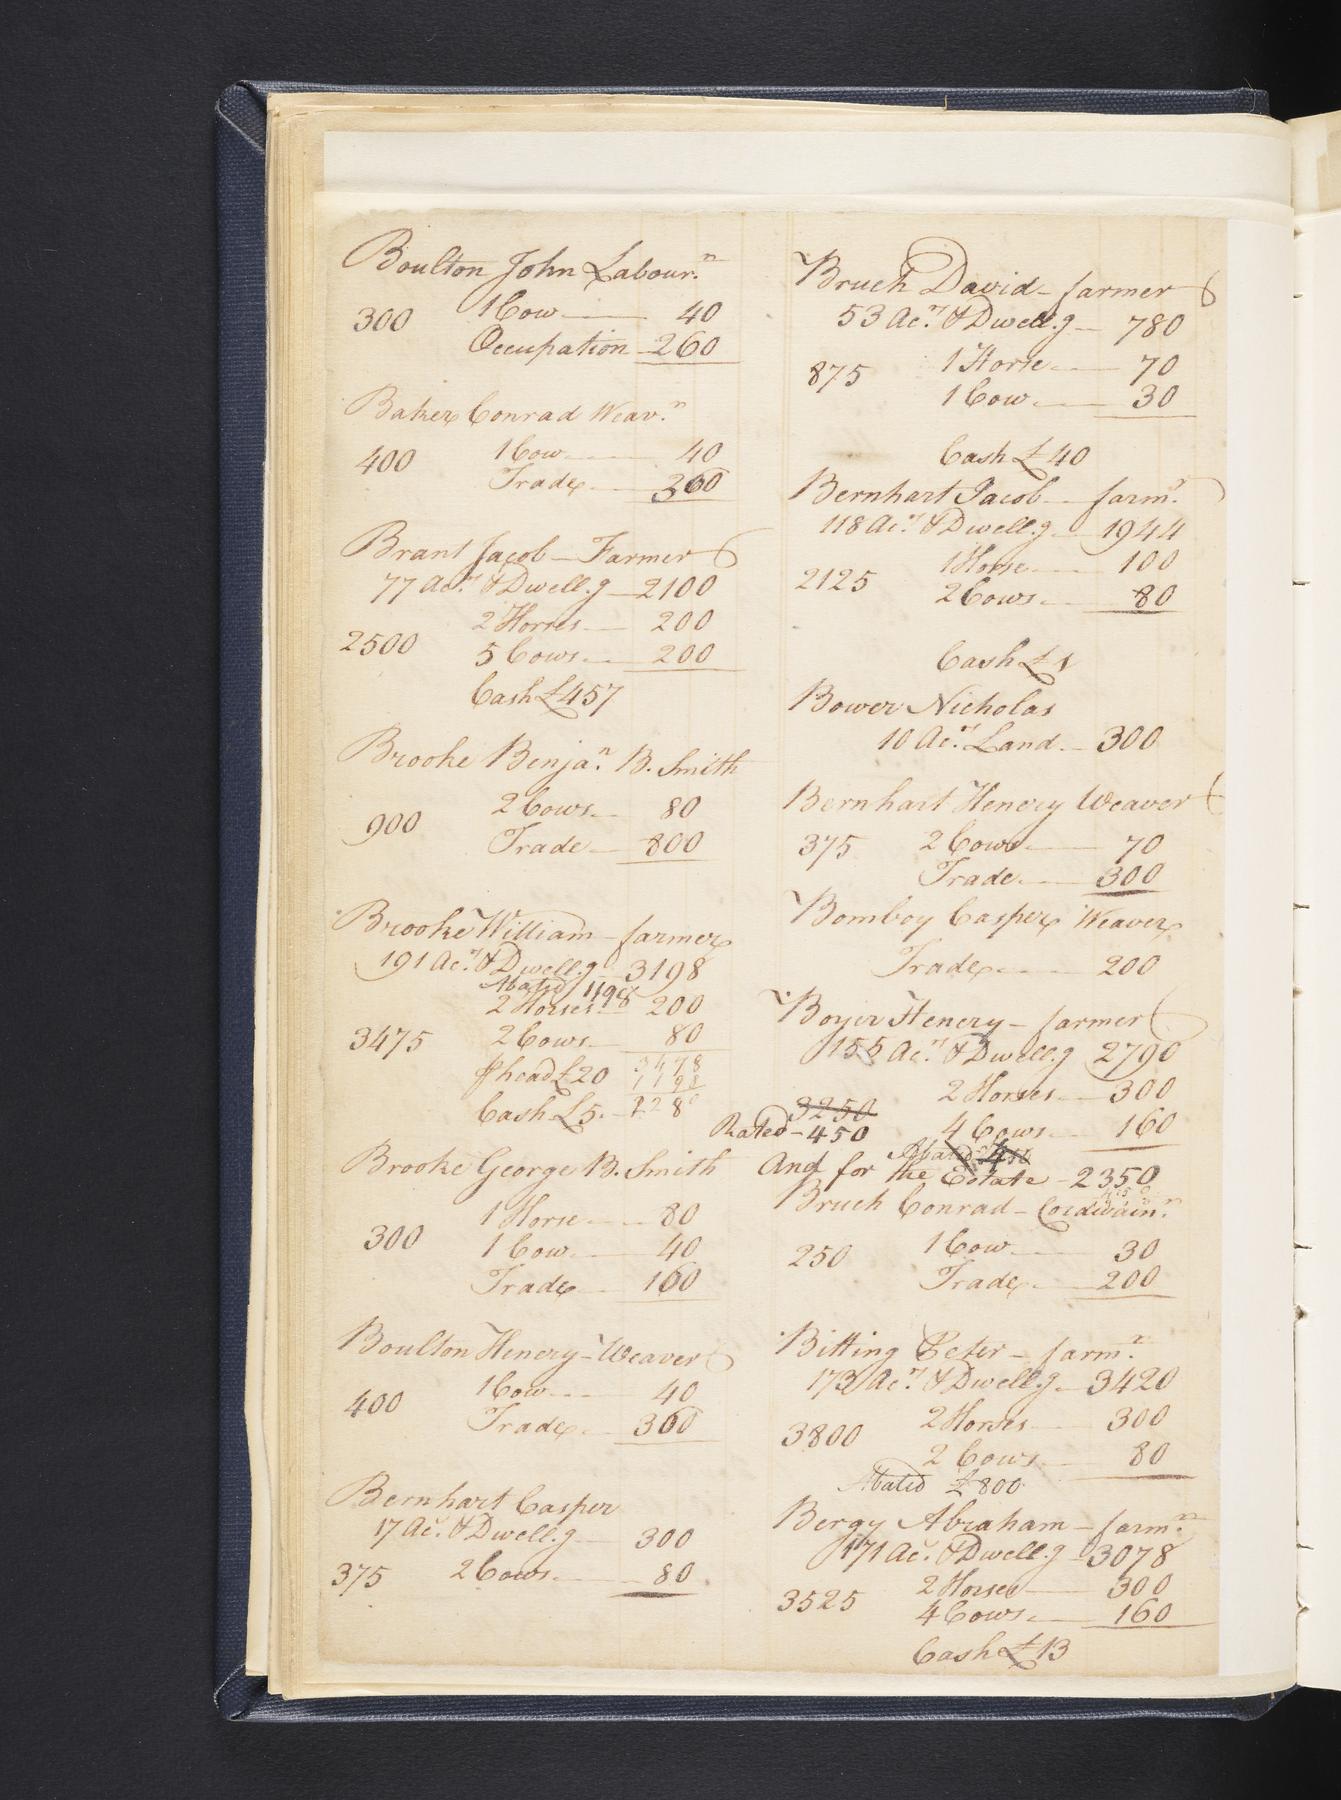 Boulton John Labour.n
1 Cow 40
300
Occupation 260
Baker Conrad Weav.n
1 Cow 40
400
Trade 360
Brant Jacob - Farmer
77 Acrs & Dwell.g 2100
2 Horses 200
2500
5 Cows 200
Cash £457
Brooke Benja.n B. Smith
2 Cows 80
900
Trade 800
Brooke William - farmer
191 Acrs & Dwell.g 3198
Abated 1198
2 Horses 200
3475
2 Cows 80
3478
phead £20 1198
Cash £5 2280
Brooke George B. Smith
1 Horse 80
300
1 Cow 40
Trade 160
Boulton Henery - Weaver
1 Cow 40
400
Trade 360
Bernhart Casper
17 Acr. & Dwell.g 300
375 2 Cows 80
Bruch David - farmer
53 Acrs & Dwell.g 780
1 Horse 70
875
1 Cow 30
Cash £40
Bernhart Jacob farm.r
118 Acrs & Dwell.g 1944
1 Horse 100
2125
2 Cows 80
Cash £1
Bower Nicholas
10 Acrs Land 300
Bernhart Henery Weaver
375 2 Cows 70
Trade 300
Bomboy Casper Weaver
Trade 200
Boyer Henery - farmer
155 Acrs & Dwell.g 2790
2 Horses 300
3250
Rated - 450 4 Cows 160
Abated 450
And for the Estate - 2350
Bruch Conrad - Cordwain.r
1 Cow 30
250
Trade 200
Bitting Peter - farm.r
173 Acrs & Dwell.g 3420
2 Horses 300
3800
2 Cows 80
Abated £800
Bergy Abraham - farm.r
171 Acr. & Dwell.g 3078
2 Horses 300
3525
4 Cows 160
Cash £13